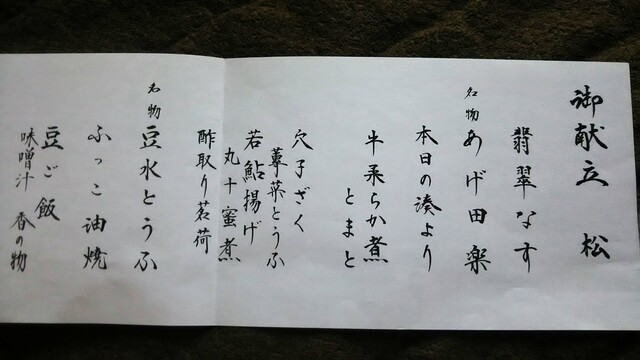 御献立 松
翡翠なす
名物 あげ田楽
本日の湊より
牛柔らか煮
とまと
穴子ざく
蓴菜とうふ
若鮎揚げ
丸十蜜煮
酢取り茗荷
名物 豆水とうふ
ふっこ油焼
豆ご飯
味噌汁 香の物